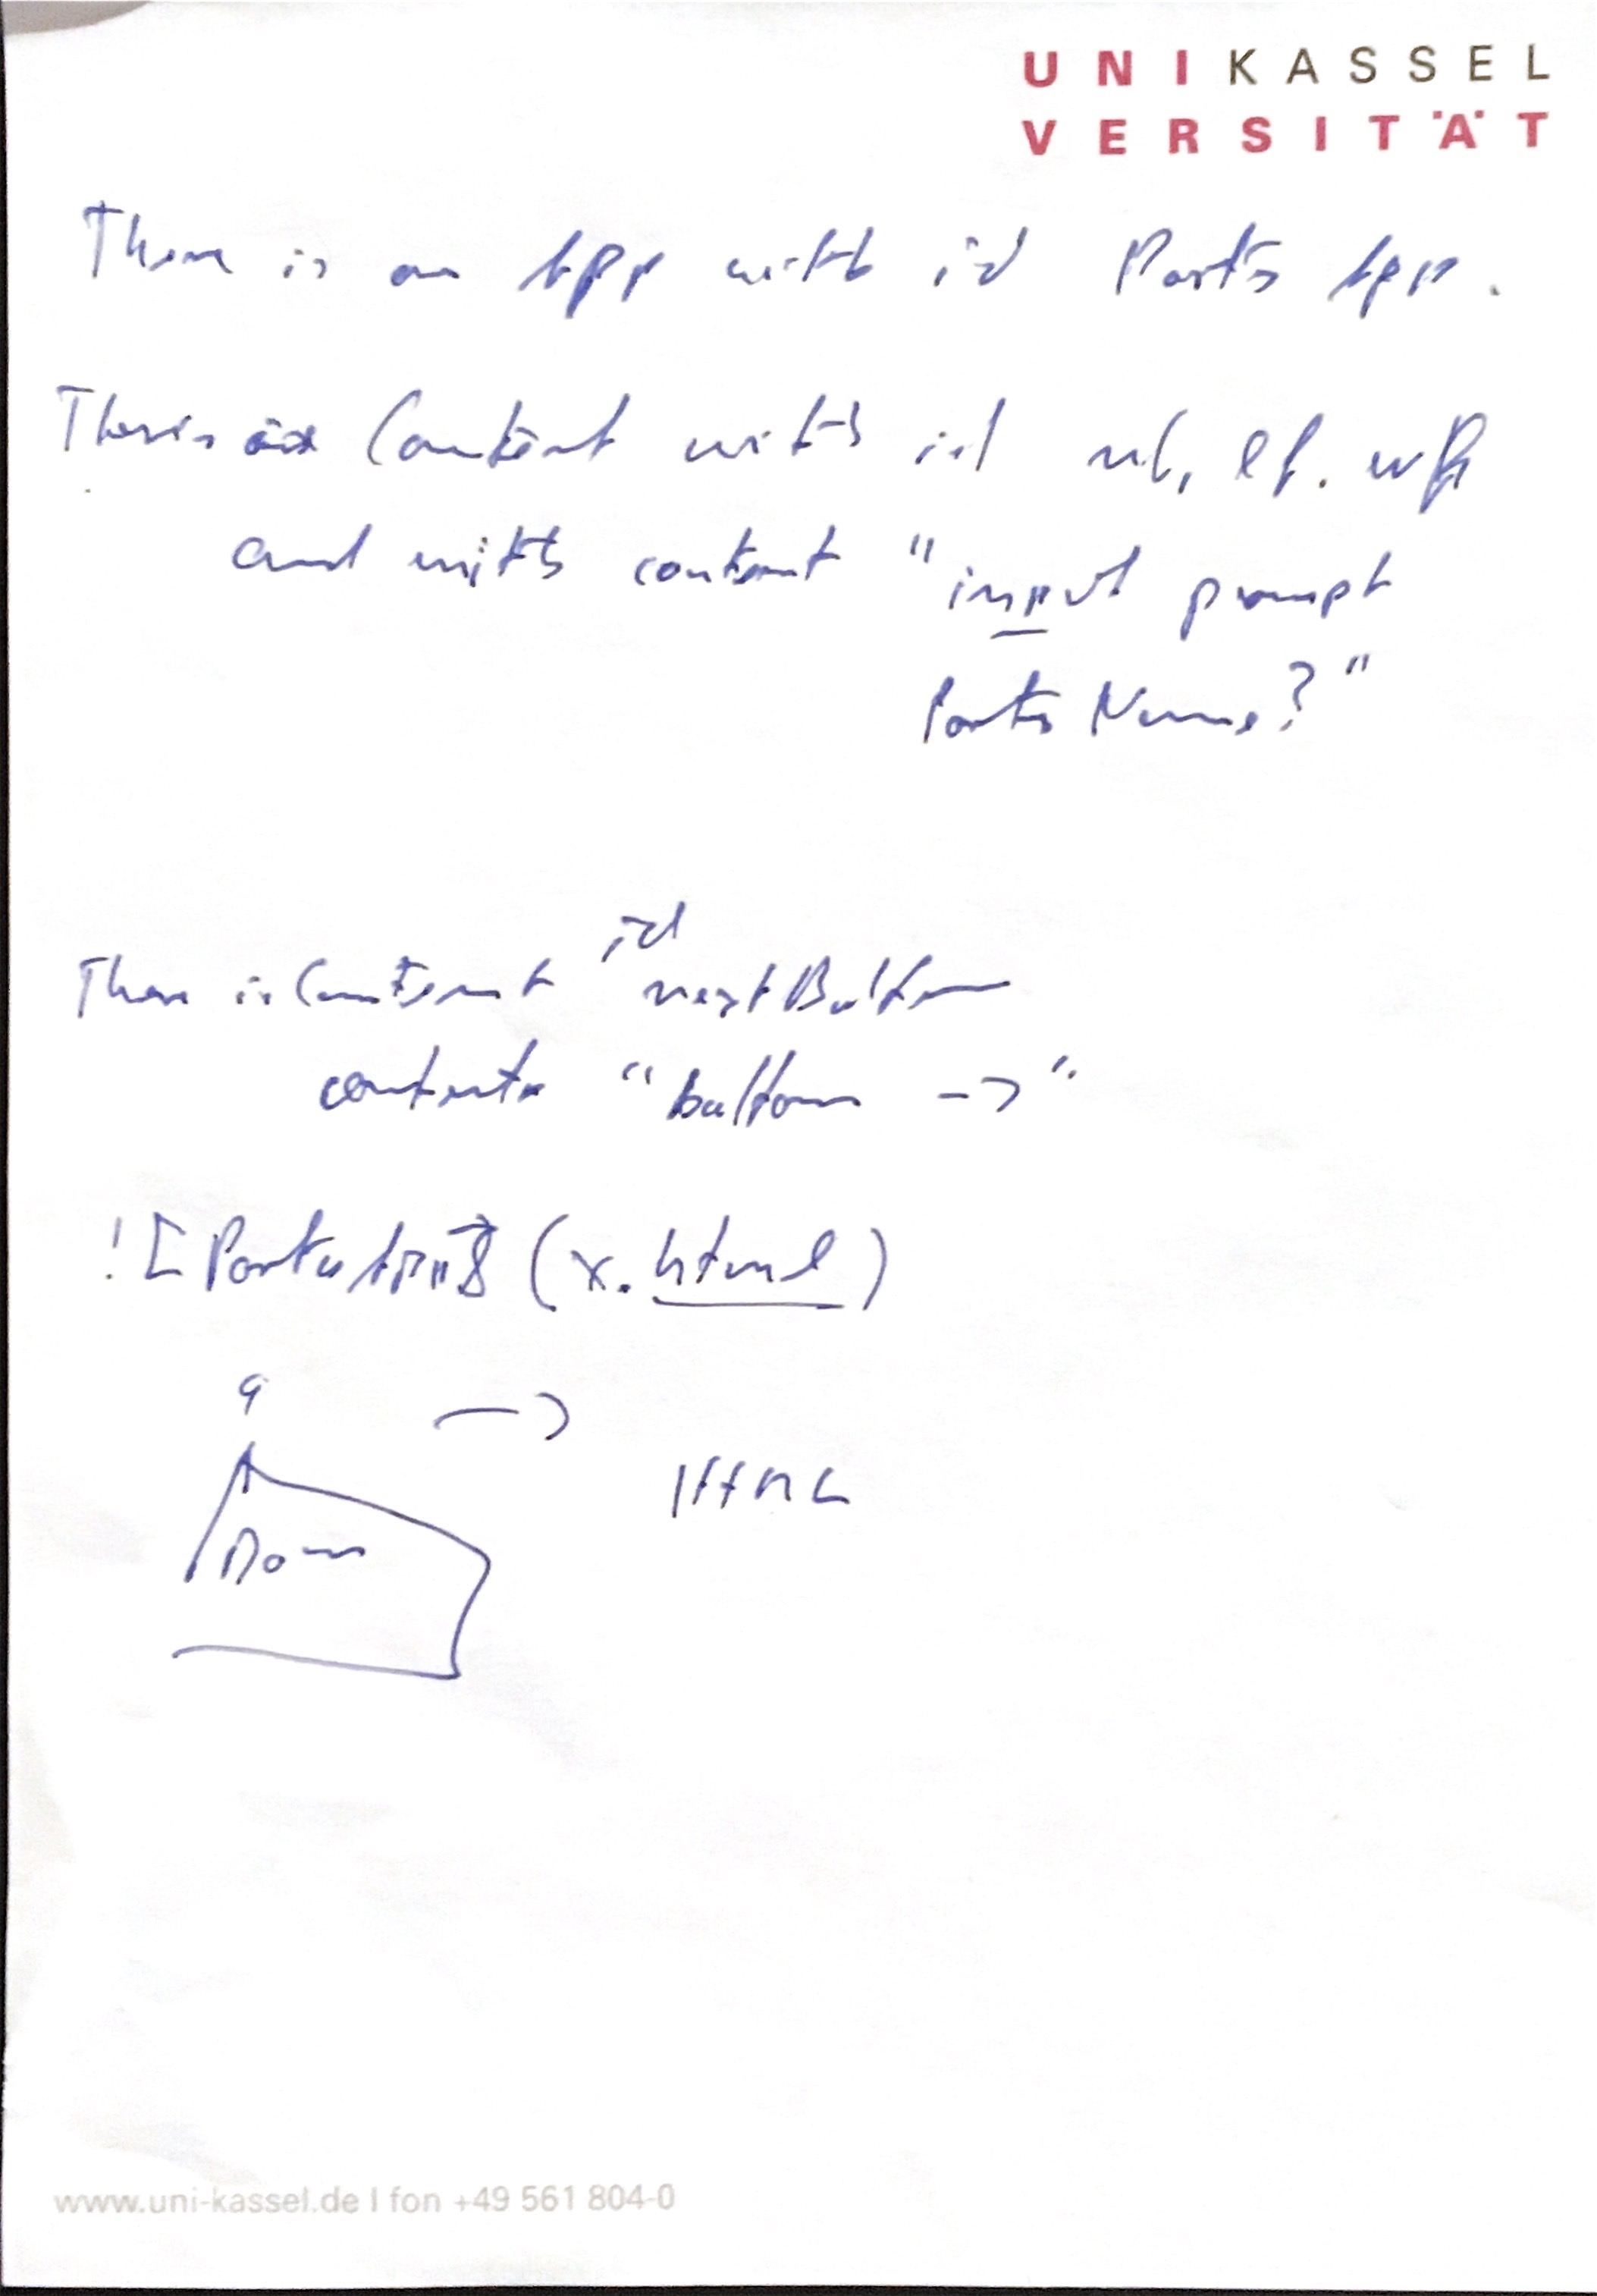 UNIKASSEL
VERSITÄT
There is an App with id Party App.
There is Content with id
and with content "input prompt
Party Name?"
id
There is Content nextButton
content "button ->".
! [ Party App ] (x.html)
->
HTML
www.uni-kassel.de I fon +49 561 804-0